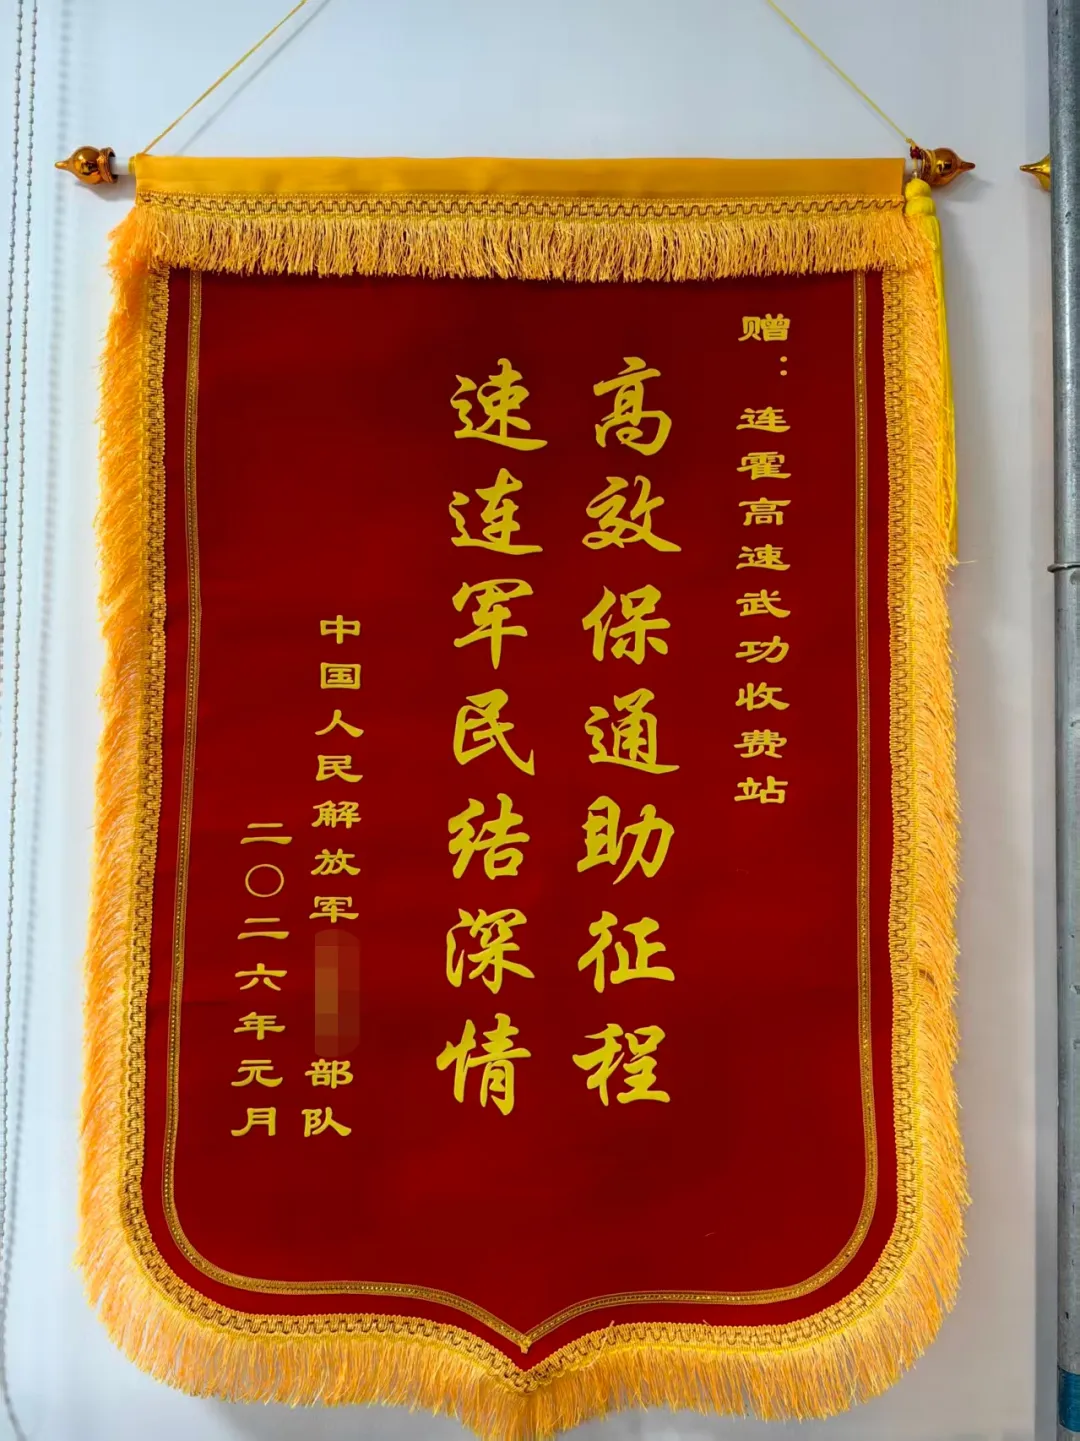 赠：连霍高速武功收费站
高效保通助征程
速连军民结深情
中国人民解放军
部队
二〇二六年元月